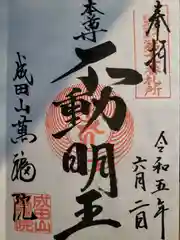 奉拝
令和五年
六月二日
本尊
不動明王
成田山萬福院
成田山